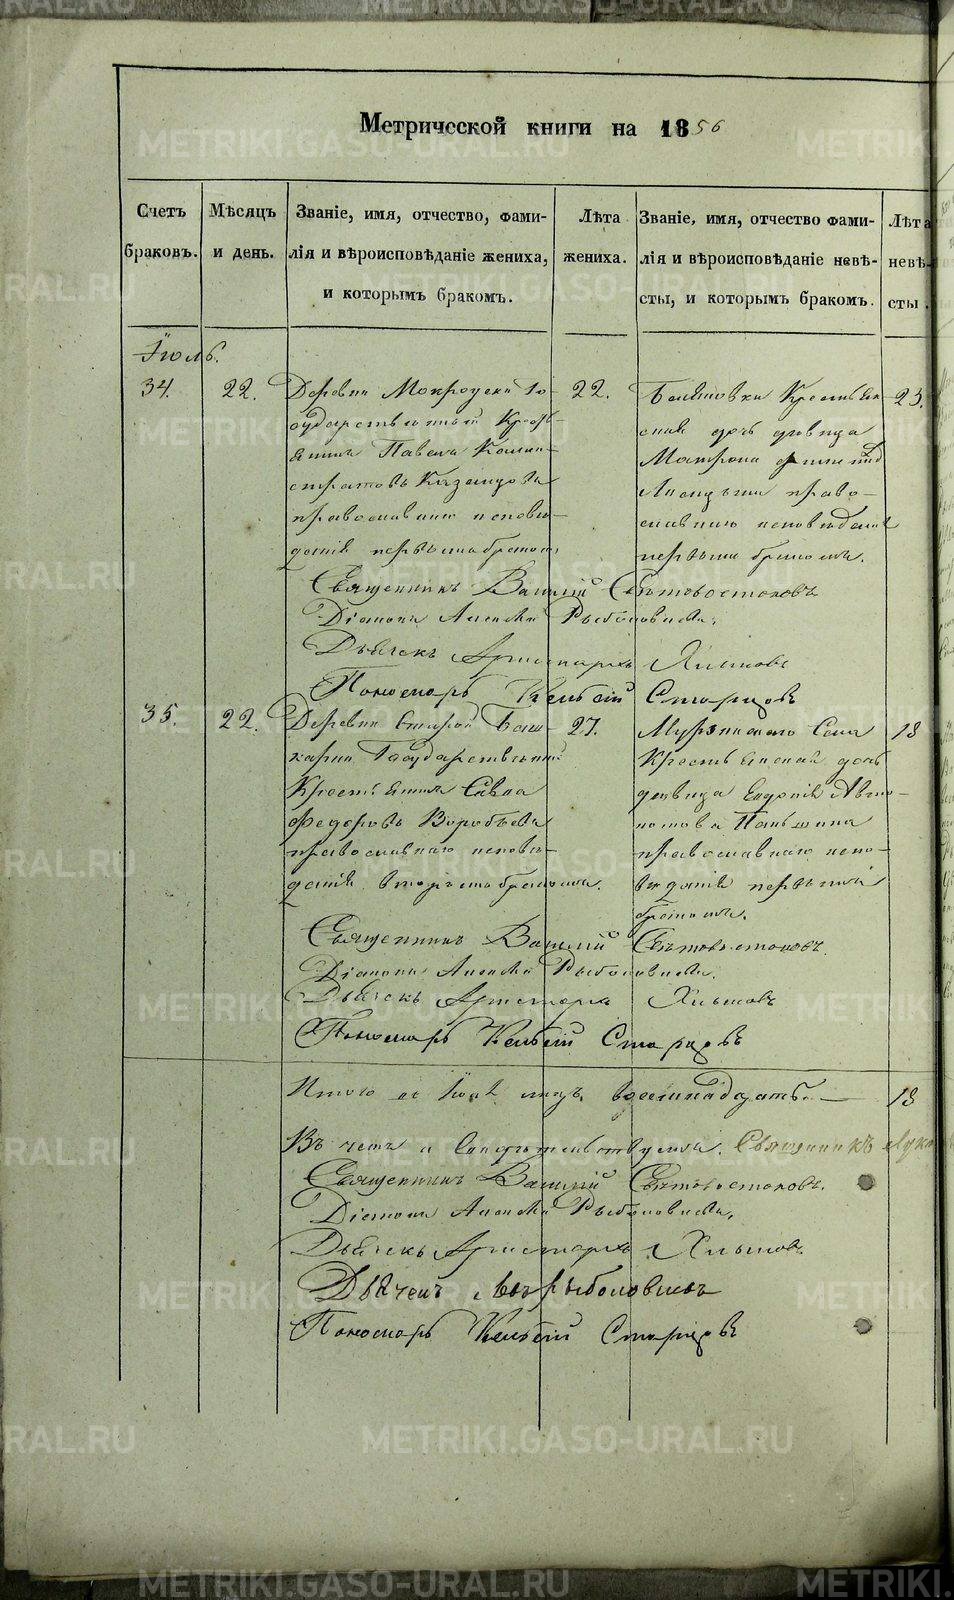 Метрической книги на 1856
Счетъ браковъ.
Мѣсяцъ и день.
Званіе, имя, отчество, фами-
лія и вѣроисповѣданіе жениха,
и которымъ бракомъ.
Лѣта жениха.
Званіе, имя, отчество фами-
лія и вѣроисповѣданіе невѣ-
сты, и которымъ бракомъ.
Лѣта невѣ-
сты.
Іюль.
34.
22.
Деревни Мокроуски Го-
сударственный Кресть-
янинъ Павелъ Калин-
стратовъ Казанцовъ
православнаго исповѣ-
данія первымъ бракомъ
22.
Крестьян-
ская дочь дѣвица
Матрона
право-
славнаго исповѣданія
первымъ бракомъ.
23.
Священникъ Василій Свѣтовостоковъ
Діаконъ Алексѣй Рыболовлевъ.
Дьячекъ Аристархъ Хлыновъ
Пономарь Старцовъ
35.
22.
Деревни Старой Баш-
карки Государственный
Крестьянинъ Савва
Федоровъ Воробьевъ
православнаго исповѣ-
данія вторымъ бракомъ.
27.
Мурзинскаго Села
Крестьянская дочь
дѣвица Евдокія Авто-
номова Паньшина
православнаго испо-
вѣданія первымъ
бракомъ.
18
Священникъ Василій Свѣтовостоковъ.
Діаконъ Алексѣй Рыболовлевъ.
Дьячекъ Аристархъ Хлыновъ
Пономарь Старцовъ
Итого въ Іюлѣ мцѣ восемнадцать. — 18
Въ чемъ и свидѣтельствуемъ. Священникъ
Священникъ Василій Свѣтовостоковъ.
Діаконъ Алексѣй Рыболовлевъ.
Дьячекъ Аристархъ Хлыновъ.
Дьячекъ Рыболовлевъ
Пономарь Старцовъ
METRIKI.GASO-URAL.RU